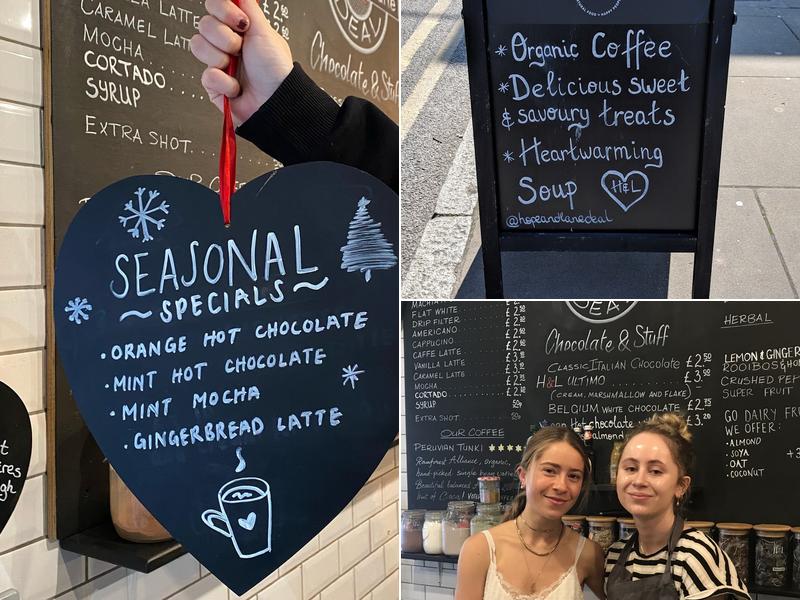 LLA LATTE
£2.60
CARAMEL LATT
MOCHA
CORTADO
SYRUP
EXTRA SHOT
DEAL
Chocolate & Stuff
SEASONAL
~ SPECIALS ~
• ORANGE HOT CHOCOLATE
• MINT HOT CHOCOLATE
• MINT MOCHA
• GINGERBREAD LATTE
* Organic Coffee
* Delicious sweet
& savoury treats
* Heartwarming
Soup H&L
@hopeandlanedeal
FLAT WHITE
DRIP FILTER
AMERICANO
CAPPUCINO
CAFFE LATTE
VANILLA LATTE
CARAMEL LATTE
MOCHA
CORTADO
SYRUP 50p
EXTRA SHOT
OUR COFFEE
PERUVIAN TUNKI
Rainforest Alliance, organic,
DEAL
Chocolate & Stuff
CLASSIC ITALIAN CHOCOLATE £2.50
H&L ULTIMO
(CREAM, MARSHMALLOW AND FLAKE)
BELGIUM WHITE CHOCOLATE
Hot chocolate £3.20
almond
HERBAL
LEMON & GINGER
ROOIBOS
CRUSHED PEP
SUPER FRUIT
GO DAIRY FR
WE OFFER:
• ALMOND
• SOYA
• OAT
• COCONUT